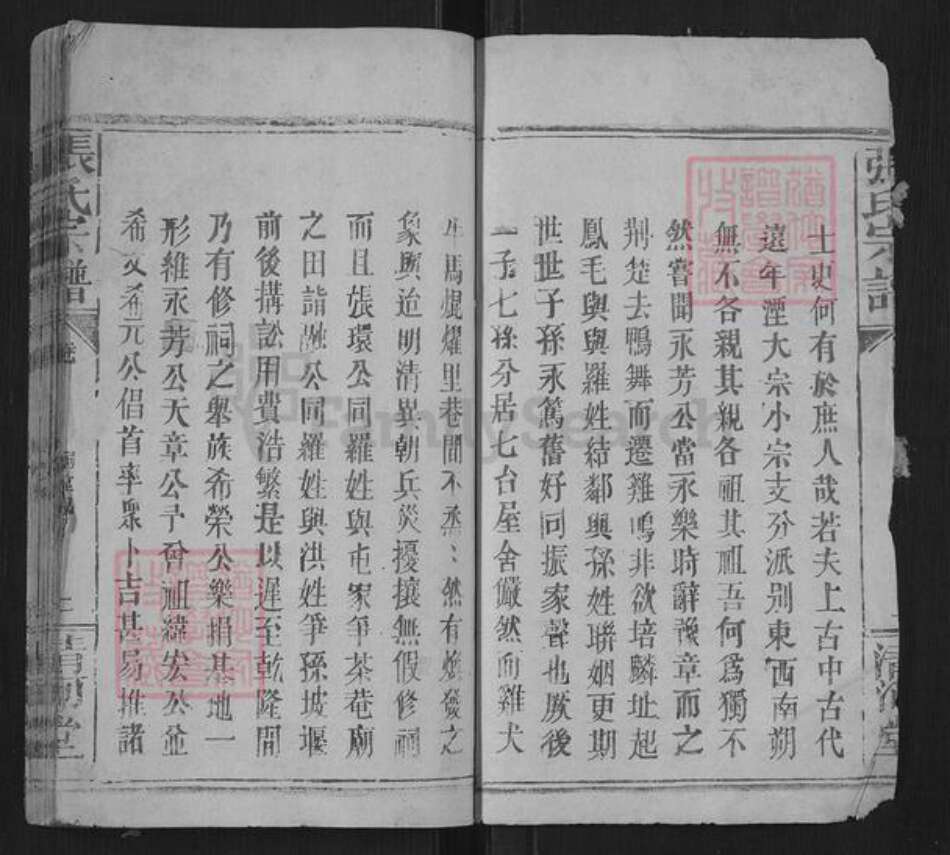 士史何有於庶人哉若夫上古中古代
遠年湮大宗小宗支分派別東西南朔
無不各親其親各祖其祖吾何爲獨不
然嘗聞永芳公當永樂時辭豫章而之
荆楚去鴨舞而遷雞鳴非欲培麟址起
鳳毛與與羅姓結鄰與孫姓聯姻更期
世世子孫永篤舊好同振家聲也厥後
一子七孫分居七台屋舍儼然而雞犬
牛馬焜燿里巷間不烝烝然有煥發之
象與迨明清異朝兵災擾攘無假修祠
而且張環公同羅姓與屯家爭茶菴廟
之田請融公同羅姓與洪姓爭孫坡堰
前後搆訟用費浩繁是以遲至乾隆間
乃有修祠之舉族希榮公樂捐基地一
形維永芳公天章公予台祖緯宏公並
希文希元公倡首率衆卜吉甚易推諸
張氏宗譜
清河堂
張氏宗譜
FamilySearch